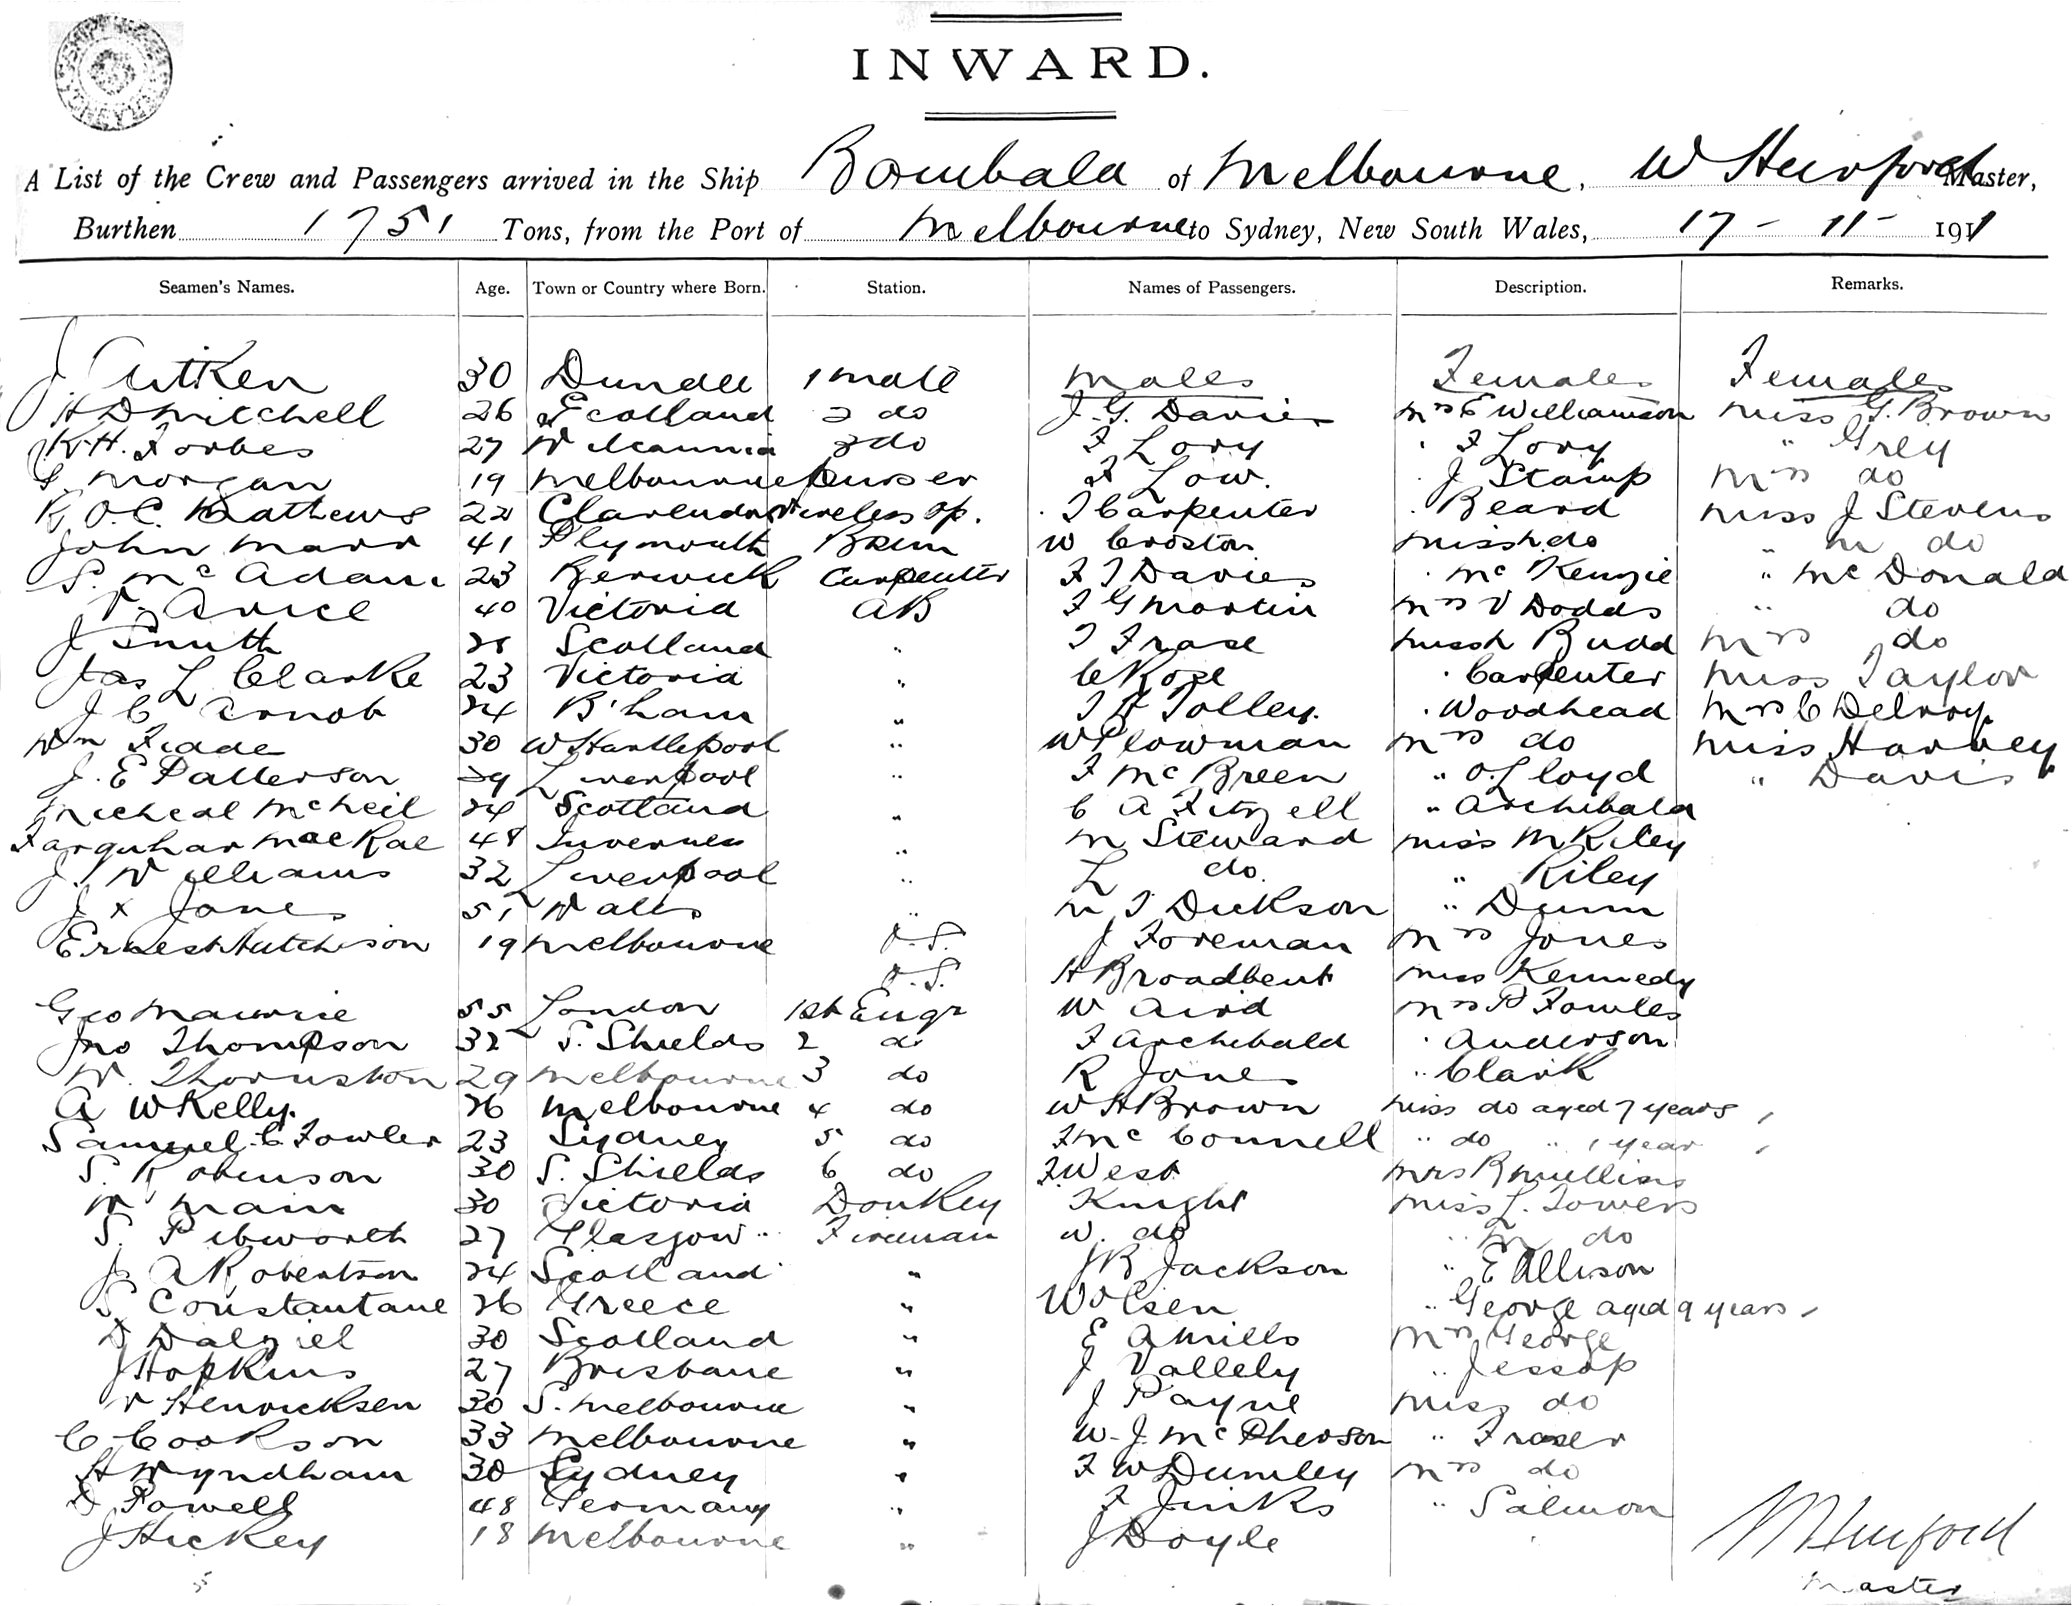 INWARD.
A List of the Crew and Passengers arrived in the Ship Bombala of Melbourne, W Hurford Master,
Burthen 1751 Tons, from the Port of Melbourne to Sydney, New South Wales, 17 - 11 - 1911
Seamen's Names. Age. Town or Country where Born. Station. Names of Passengers. Description. Remarks.
J. Aitken 30 Dundee 1 mate Males Females Females
H D Mitchell 26 Scotland 2 do J. G. Davies Mrs E Williamson Miss G. Brown
K. H. Forbes 27 Wilcannia 3 do F Lory " F Lory " Grey
G Morgan 19 Melbourne Purser F Low. " J Stamp Mrs do
R. O. C. Mathews 22 Clarendon Wireless Op. T Carpenter " Beard Miss J Stevens
John Marr 41 Plymouth W Croston Miss h. do " M do
S. McAdam 23 Berwick Carpenter F J Davies " McKenzie " McDonald
40 Victoria AB F G Martin Mrs V Dodds " do
J Smith 28 Scotland " T Frase Miss h Budd Mrs do
Jas L Clarke 23 Victoria " C Rose " Carpenter Miss Taylor
J C 24 B'ham " T H Tolley. " Woodhead Mrs C Delroy.
Wm 30 W Hartlepool " W Plowman Mrs do Miss Harvey
J. E Patterson 29 Liverpool " F McBreen " O. Lloyd " Davis
Micheal McNeil 24 Scotland " C A Fitzell " Archibald
Farquhar MacRae 48 Inverness " M Steward Miss M Riley
J. Williams 32 Liverpool " L do. " Riley
J x Jones 51 Wales " M T Dickson " Dunn
Ernest Hutchison 19 Melbourne O.S. J Foreman Mrs Jones
O.S. H Broadbent Miss Kennedy
Geo 55 London 1st Engr W Aird Mrs P Fowles
Jno Thompson 32 S. Shields 2 do F Archibald " Anderson
W. Thornston 29 Melbourne 3 do R Jones " Clark
A W Kelly. 26 Melbourne 4 do W H Brown Miss do aged 7 years
Samuel C Fowler 23 Sydney 5 do F McConnell " do " 1 year
S. Robinson 30 S. Shields 6 do F West Mrs R Mullins
W Main 30 Victoria Donkey Knight Miss L. Towers
S. Pibworth 27 Glasgow Fireman W. do " M do
J A Robertson 24 Scotland " J R Jackson " E Allison
S Constantane 26 Greece " W Olsen " George aged 9 years
D Dalziel 30 Scotland " E A Mills Mrs George
J Hopkins 27 Brisbane " J Vallely " Jessop
V Henricksen 30 S. Melbourne " J Payne Miss do
C Cookson 33 Melbourne " W. J. McPherson " Fraser
H Wyndham 30 Sydney " F W Dumley Mrs do
D Powell 48 Germany " F Jinks " Salmon
J Hickey 18 Melbourne " J Doyle
W Hurford
Master